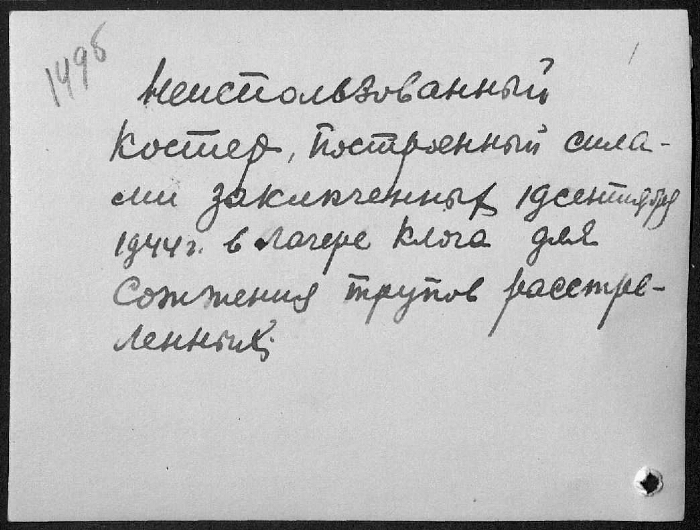 1496
Неиспользованный
костер, построенный сила-
ми заключенных 19 сентября
1944 г. в лагере Клога для
сожжения трупов расстре-
ленных.